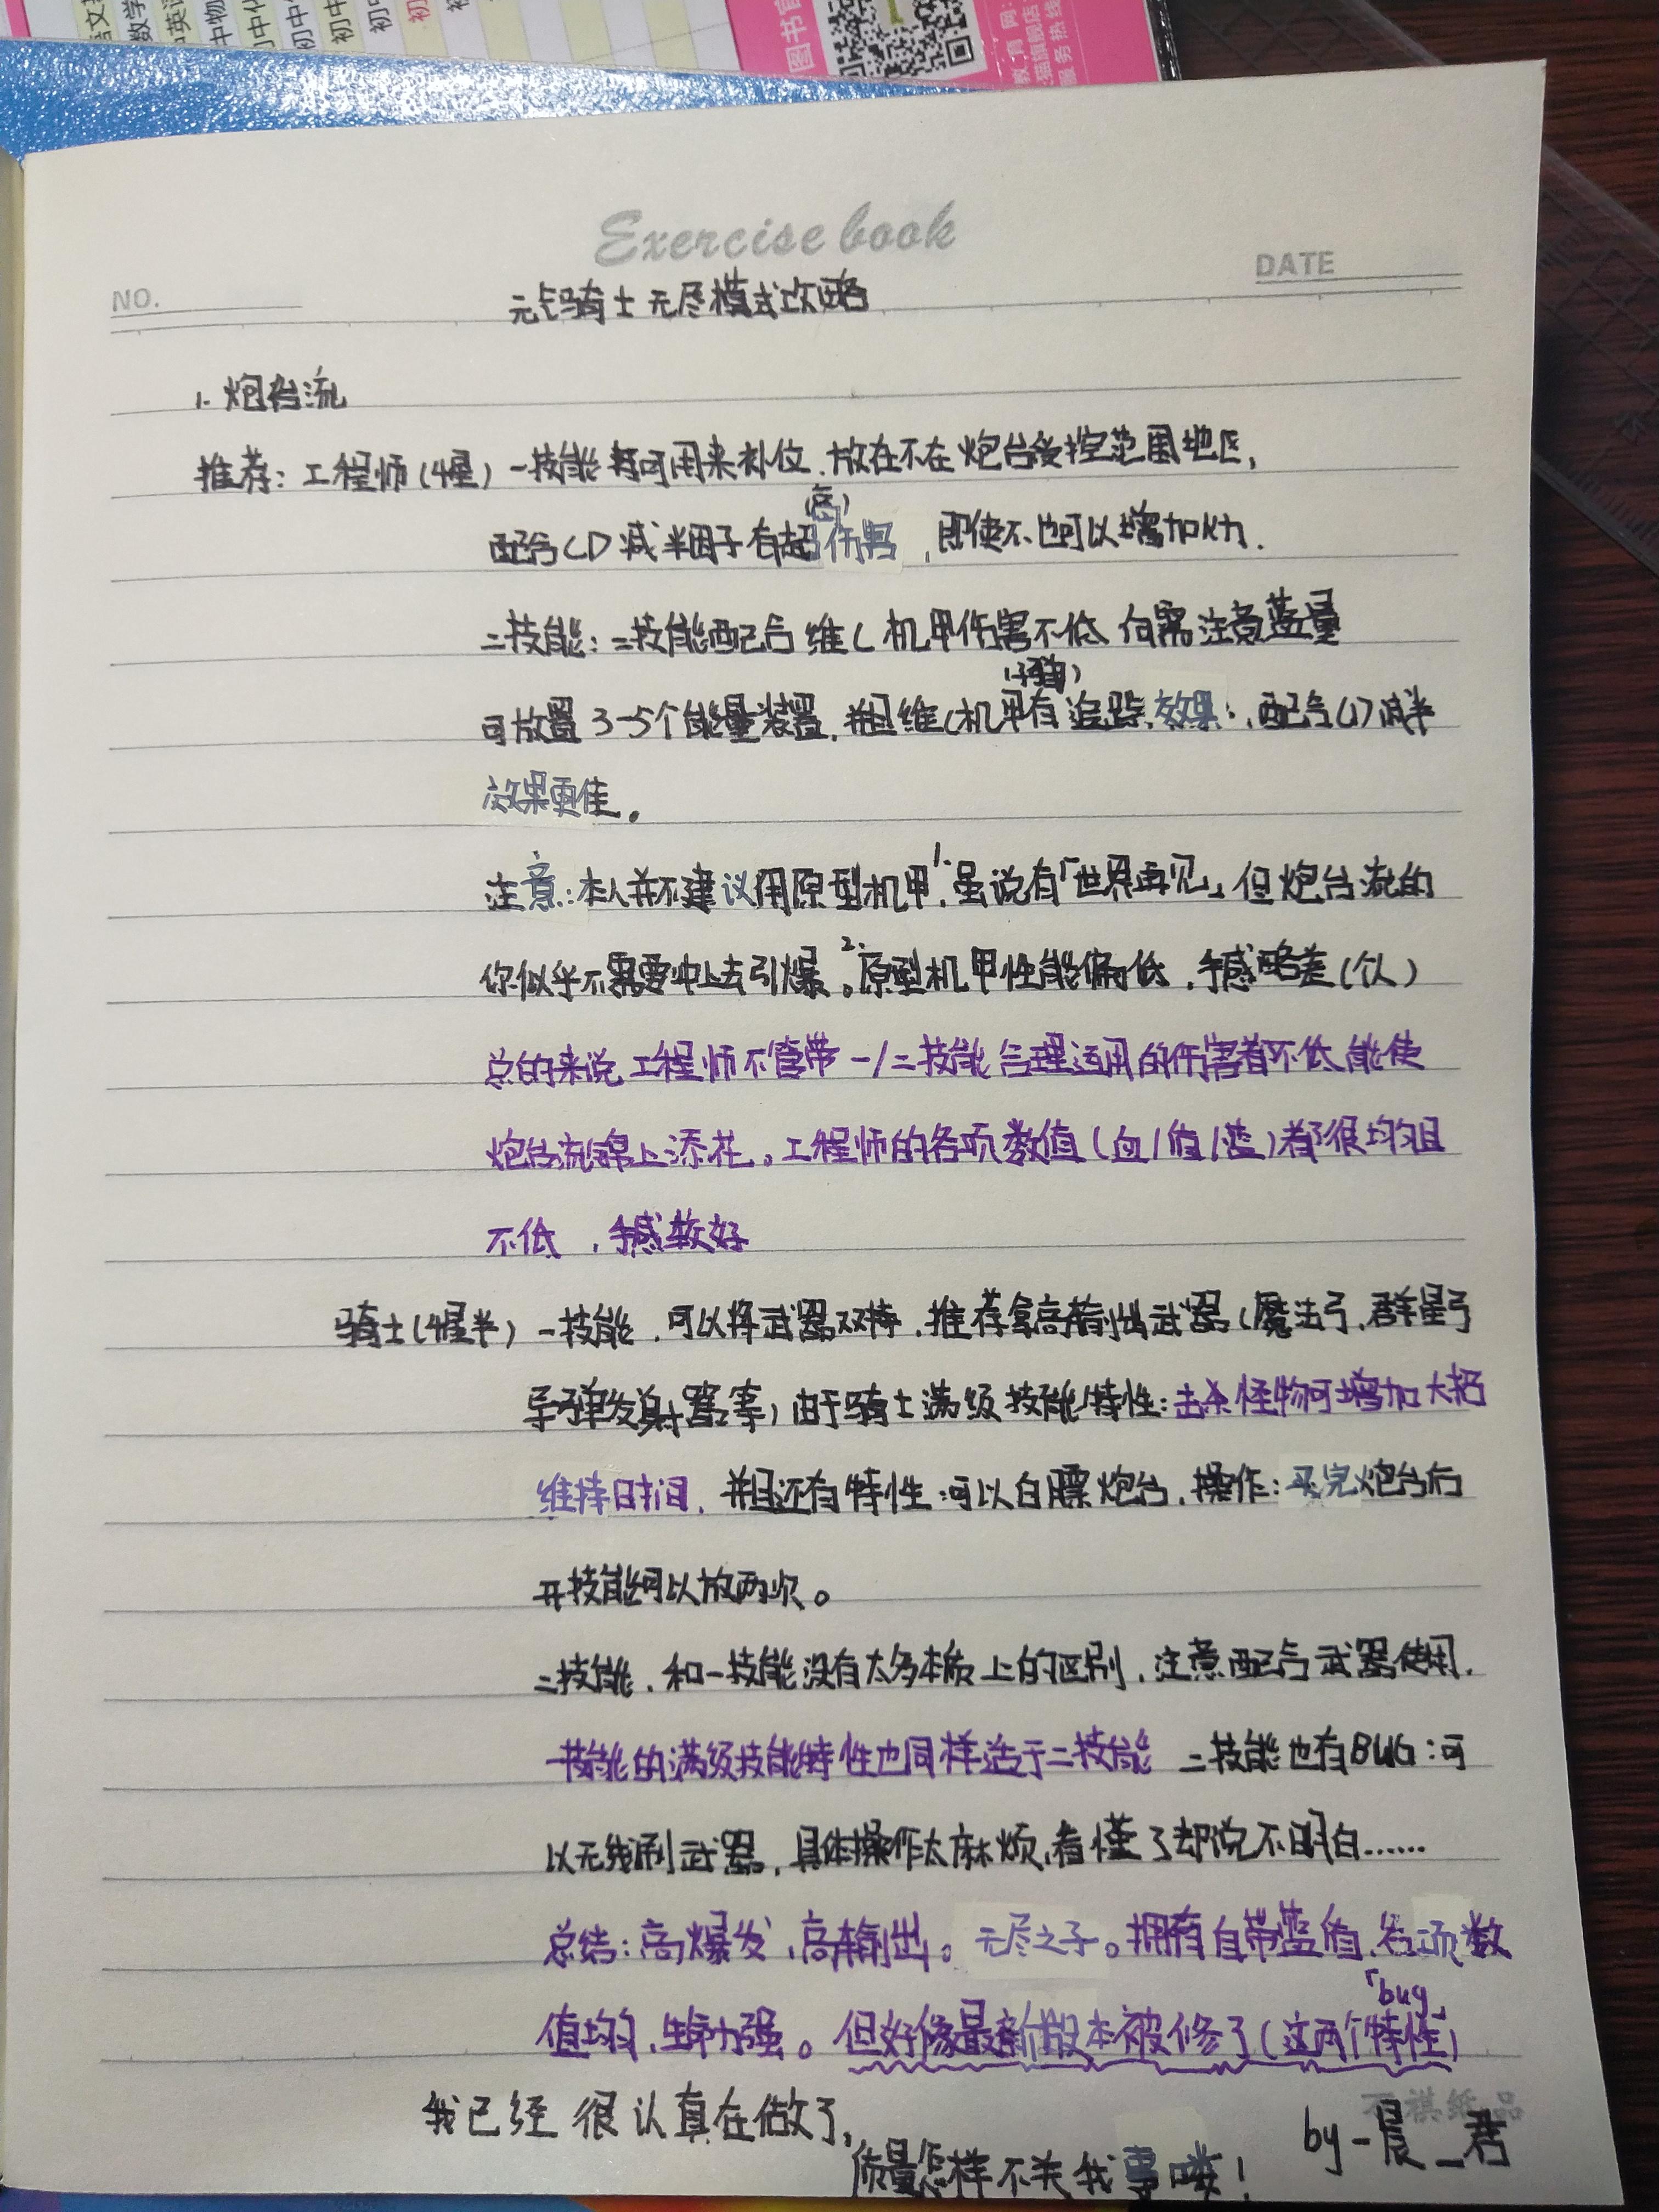 图书官
教育网:
猫旗舰店
服务热线
Exercise book
NO.
DATE
元气骑士无尽模式攻略
1. 炮台流
推荐: 工程师(4星) 一技能 可用来补位, 放在不在炮台受控范围地区,
(高)
配合CD减半因子有超伤害, 即使不也可以增加火力.
二技能: 二技能配合维C机甲伤害不低 但需注意蓝量
(子弹)
可放置3-5个能量装置, 并且维C机甲有追踪效果, 配合CD减半
效果更佳。
注意: 本人并不建议用原型机甲, 1.虽说有「世界再见」但炮台流的
你似乎不需要冲上去引爆。2.原型机甲性能偏低, 手感略差(个人)
总的来说工程师不管带一/二技能合理适用的伤害都不低能使
炮台流锦上添花。工程师的各项数值(血/值/蓝)都很均且
不低, 手感较好
骑士(4星半) 一技能, 可以将武器双持, 推荐拿高输出武器(魔法弓, 群星弓
导弹发射器等) 由于骑士满级技能特性: 击杀怪物可增加大招
维持时间, 并且还有特性:可以白嫖炮台, 操作: 买完炮台后
开技能可以放两次。
二技能, 和一技能没有太多本质上的区别, 注意配合武器使用.
一技能的满级技能特性也同样适于二技能 二技能也有BUG:可
以无线刷武器, 具体操作太麻烦, 看懂了却说不明白……
总结: 高爆发, 高输出。无尽之子。拥有自带蓝盾, 各项数
值均匀, 生命力强。但好像最新版本被修了(这两个「bug」特性)
我已经很认真在做了,
质量怎样不关我事喽!
by-晨_君